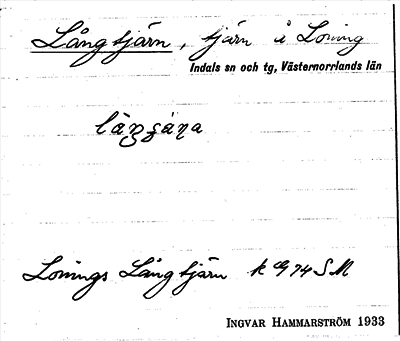 Långtjärn, tjärn i Loning
Indals sn och tg, Västernorrlands län
Lonings Långtjärn k G74 SM
INGVAR HAMMARSTRÖM 1933